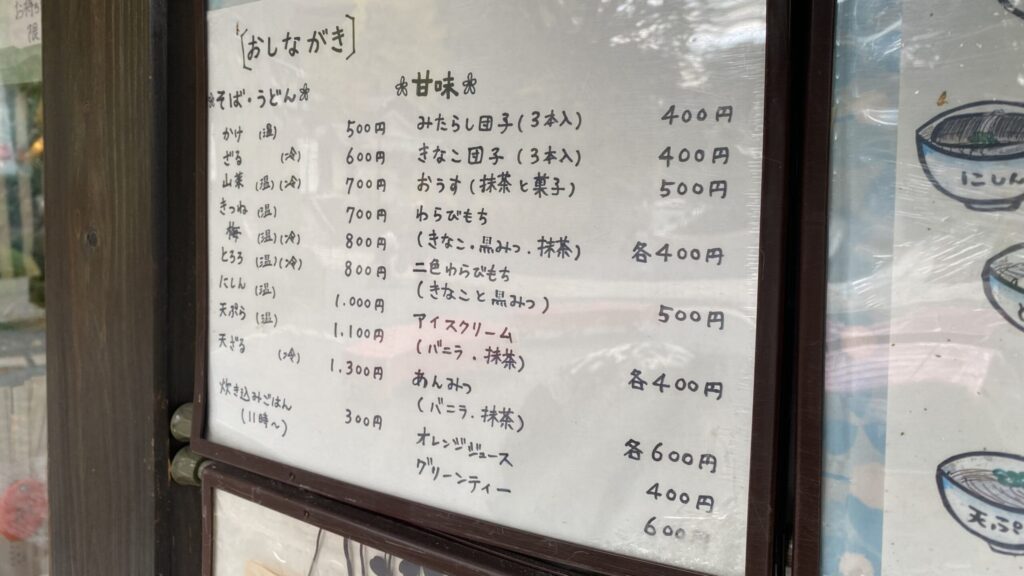 [おしながき]
そば・うどん
かけ (温) 500円
ざる (冷) 600円
山菜 (温) (冷) 700円
きつね (温) 700円
梅 (温) (冷) 800円
とろろ (温) (冷) 800円
にしん (温) 1.000円
天ぷら (温) 1.100円
天ざる (冷) 1.300円
炊き込みごはん
(11時〜) 300円
甘味
みたらし団子 (3本入) 400円
きなこ団子 (3本入) 400円
おうす (抹茶と菓子) 500円
わらびもち
(きなこ・黒みつ・抹茶) 各400円
二色わらびもち
(きなこと黒みつ) 500円
アイスクリーム
(バニラ・抹茶) 各400円
あんみつ
(バニラ・抹茶) 各600円
オレンジジュース 400円
グリーンティー 600
にしん
と
天ぷ